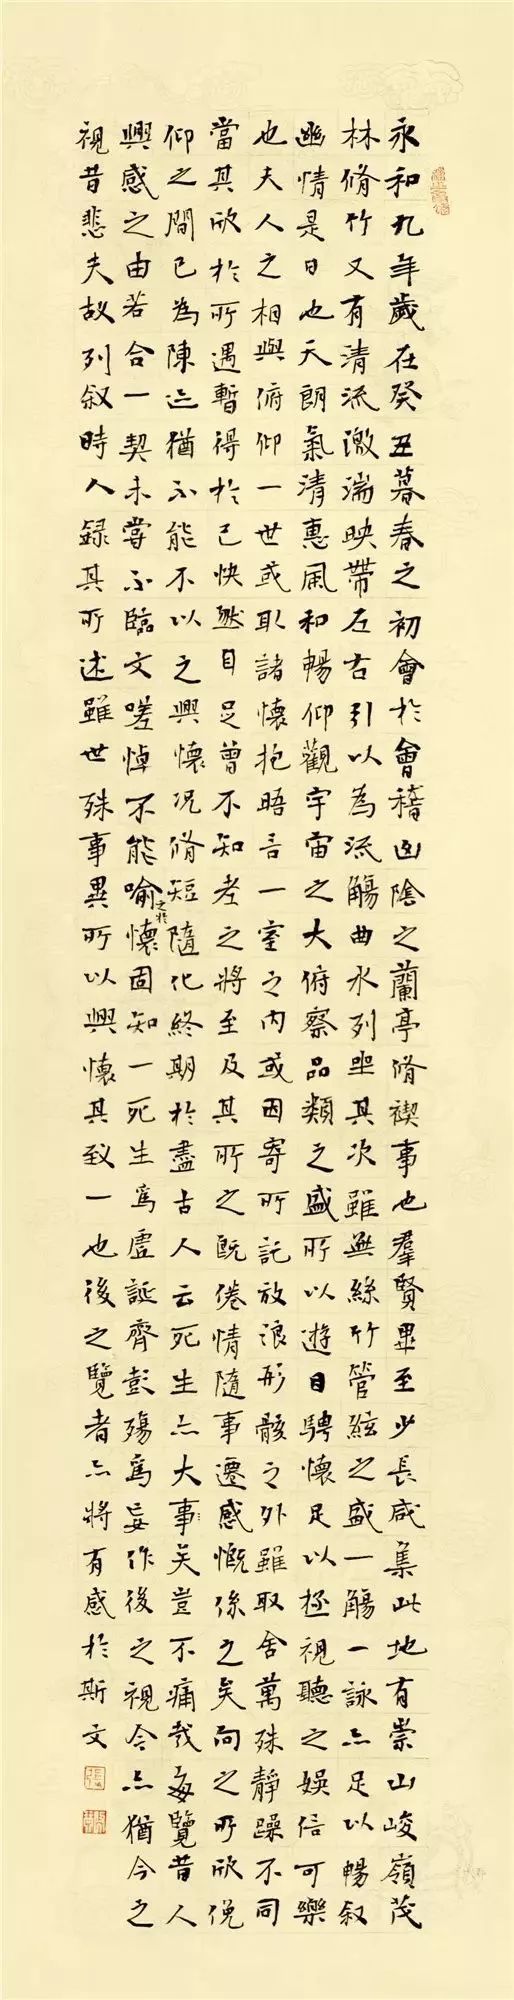 永和九年歲在癸丑暮春之初會於會稽山陰之蘭亭脩禊事也羣賢畢至少長咸集此地有崇山峻嶺茂
林脩竹又有清流激湍映帶左右引以為流觴曲水列坐其次雖無絲竹管絃之盛一觴一詠亦足以暢叙
幽情是日也天朗氣清惠風和暢仰觀宇宙之大俯察品類之盛所以遊目騁懷足以極視聽之娛信可樂
也夫人之相與俯仰一世或取諸懷抱晤言一室之內或因寄所託放浪形骸之外雖取舍萬殊靜躁不同
當其欣於所遇暫得於己快然自足曾不知老之將至及其所之既倦情隨事遷感慨係之矣向之所欣俛
仰之間已為陳迹猶不能不以之興懷況脩短隨化終期於盡古人云死生亦大事矣豈不痛哉每覽昔人
興感之由若合一契未嘗不臨文嗟悼不能喻之於懷固知一死生為虛誕齊彭殤為妄作後之視今亦猶今之
視昔悲夫故列叙時人録其所述雖世殊事異所以興懷其致一也後之覽者亦將有感於斯文